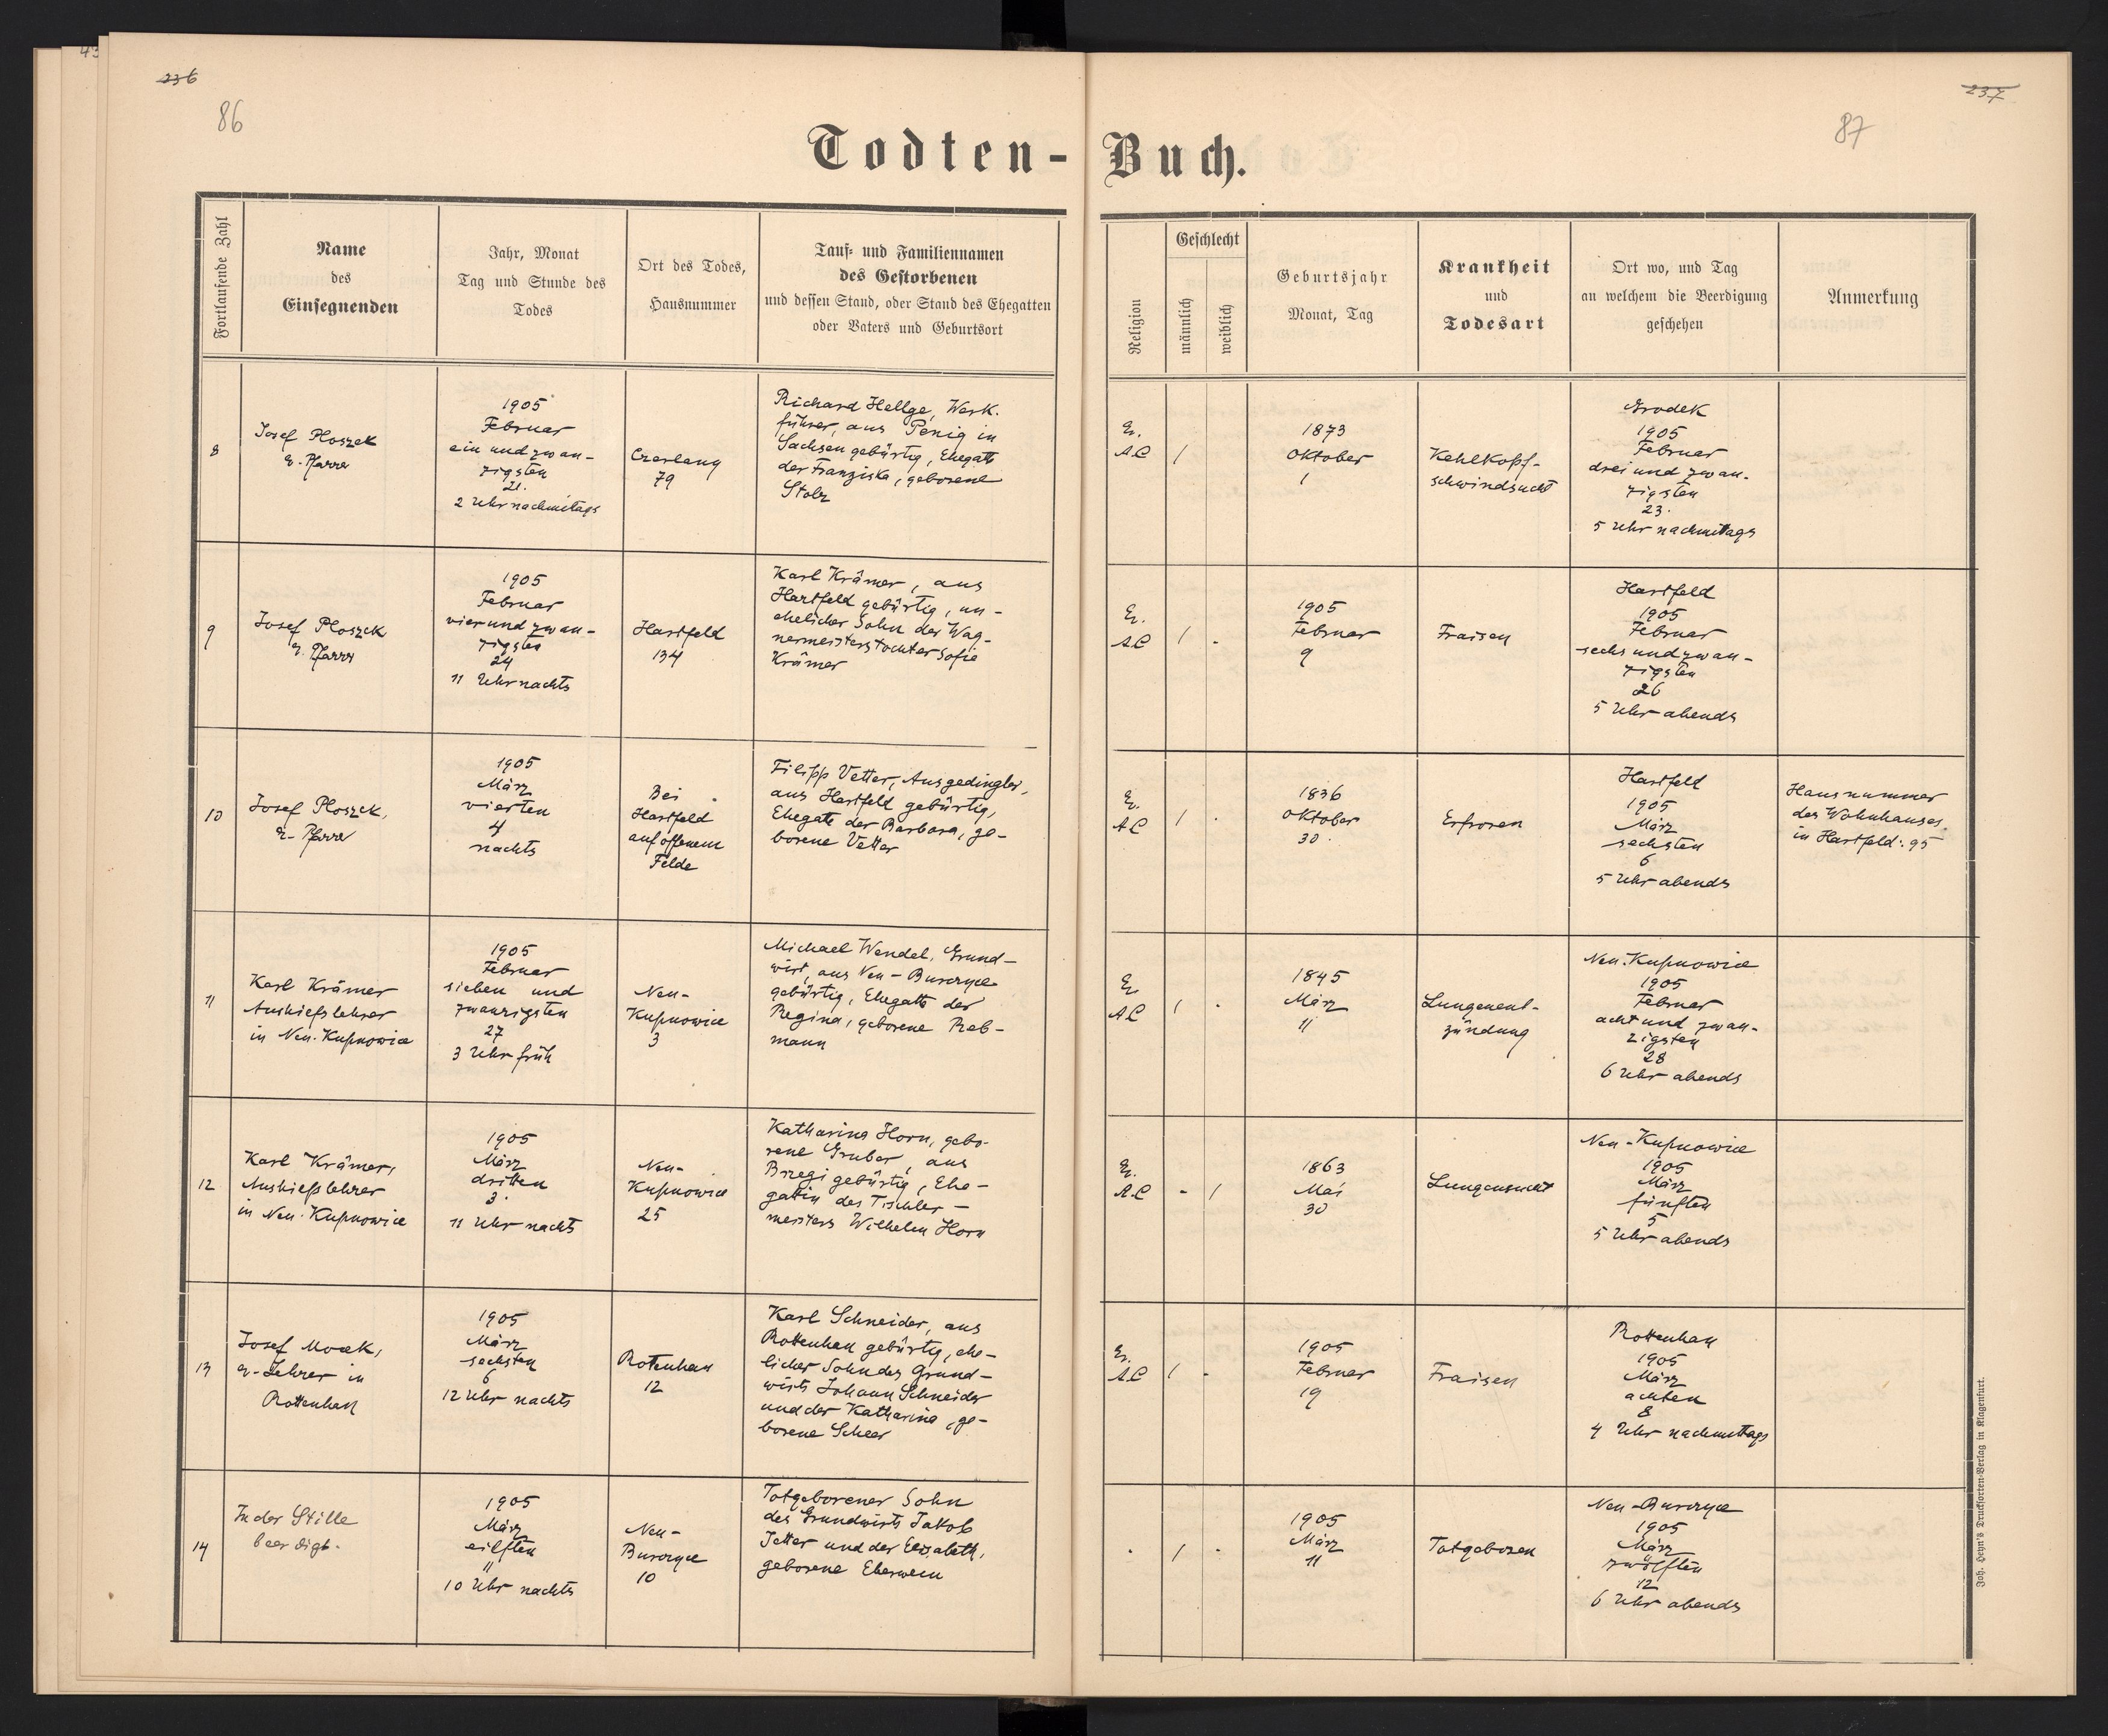 43
236
86
237
87
Todten-Buch.
Fortlaufende Zahl
Name
des
Einsegnenden
Jahr, Monat
Tag und Stunde des
Todes
Ort des Todes,
Hausnummer
Tauf- und Familiennamen
des Gestorbenen
und dessen Stand, oder Stand des Ehegatten
oder Vaters und Geburtsort
Religion
Geschlecht
männlich
weiblich
Geburtsjahr
Monat, Tag
Krankheit
und
Todesart
Ort wo, und Tag
an welchem die Beerdigung
geschehen
Anmerkung
8
Josef Ploszek
ev. Pfarrer
1905
Februar
ein und zwan-
zigsten
21.
2 Uhr nachmittags
Czerlany
79
Richard Hellge, Werk-
führer, aus Penig in
Sachsen gebürtig, Ehegatte
der Franziska, geborene
Stolz
Ev.
A.C
/
1873
Oktober
1
Kehlkopf-
schwindsucht
Grodek
1905
Februar
drei und zwan-
zigsten
23.
5 Uhr nachmittags
9
Josef Ploszek
ev. Pfarrer
1905
Februar
vier und zwan-
zigsten
24
11 Uhr nachts
Hartfeld
134
Karl Krämer, aus
Hartfeld gebürtig, un-
ehelicher Sohn der Wag-
nermeisterstochter Sofie
Krämer
Ev.
A.C
/ -
1905
Februar
9
Fraisen
Hartfeld
1905
Februar
sechs und zwan-
zigsten
26
5 Uhr abends
10
Josef Ploszek,
ev. Pfarrer
1905
März
vierten
4
nachts
Bei
Hartfeld
auf offenem
Felde
Filipp Vetter, Ausgedingler,
aus Hartfeld gebürtig,
Ehegatte der Barbara, ge-
borene Vetter
Ev.
A.C
/ -
1836
Oktober
30.
Erfroren
Hartfeld
1905
März
sechsten
6
5 Uhr abends
Hausnummer
des Wohnhauses
in Hartfeld: 95
11
Karl Krämer
Aushilfslehrer
in Neu-Kupnowice
1905
Februar
sieben und
zwanzigsten
27
3 Uhr früh
Neu-
Kupnowice
3
Michael Wendel, Grund-
wirt, aus Neu-Burczyce
gebürtig, Ehegatte der
Regina, geborene Reb-
mann
Ev
A.C
/ -
1845
März
11
Lungenent-
zündung
Neu-Kupnowice
1905
Februar
acht und zwan-
zigsten
28
6 Uhr abends
12
Karl Krämer,
Aushilfslehrer
in Neu-Kupnowice
1905
März
dritten
3.
11 Uhr nachts
Neu-
Kupnowice
25
Katharina Horn, gebo-
rene Gruber, aus
Brzegi gebürtig, Ehe-
gattin des Tischler-
meisters Wilhelm Horn
Ev.
A.C
- /
1863
Mai
30
Lungensucht
Neu-Kupnowice
1905
März
fünften
5
5 Uhr abends
13
Josef Mock,
ev. Lehrer in
Rottenhan
1905
März
sechsten
6
12 Uhr nachts
Rotenhan
12
Karl Schneider, aus
Rottenhan gebürtig, ehe-
licher Sohn des Grund-
wirts Johann Schneider
und der Katharina, ge-
borene Scheer
Ev.
A.C
/ -
1905
Februar
19
Fraisen
Rottenhan
1905
März
achten
8
4 Uhr nachmittags
14
In der Stille
beerdigt.
1905
März
eilften
11
10 Uhr nachts
Neu-
Burczyce
10
Totgeborener Sohn
des Grundwirts Jakob
Jetter und der Elisabeth,
geborene Eberwein
- / -
1905
März
11
Totgeboren
Neu-Burczyce
1905
März
zwölften
12
6 Uhr abends
Joh. Heyn's Drucksorten-Verlag in Klagenfurt.